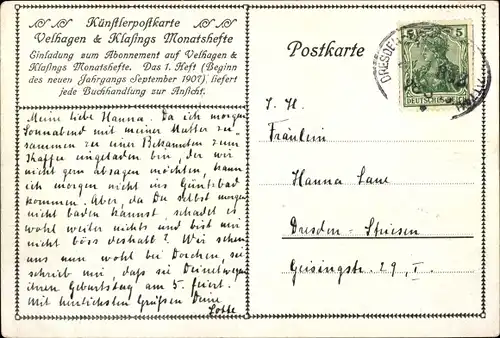 Künstlerpostkarte
Velhagen & Klasings Monatshefte
Einladung zum Abonnement auf Velhagen &
Klasings Monatshefte. Das 1. Heft (Beginn
des neuen Jahrgangs September 1907), liefert
jede Buchhandlung zur Ansicht.
Postkarte
DRESDEN
5 5
DEUTSCHES REICH
Meine liebe Hanna. Da ich morgen
Sonnabend mit meiner Mutter zu-
sammen zu einer Bekannten zum
Kaffee eingeladen bin, der wir
nicht gern absagen möchten, kann
ich morgen nicht ins Güntzbad
kommen. Aber, da Du selbst morgen
nicht baden kannst schadet es
wohl weiter nichts und bist mir
nicht böse deshalb? Wir sehen
uns nun wohl bei Dorchen, sie
schrieb mir, dass sie Deinetwegen
ihren Geburtstag am 5. feiert.
Mit herzlichsten Grüssen Deine
Lotte
Fräulein
Hanna Lane
Dresden - Striesen
Geisingstr. 29 I.